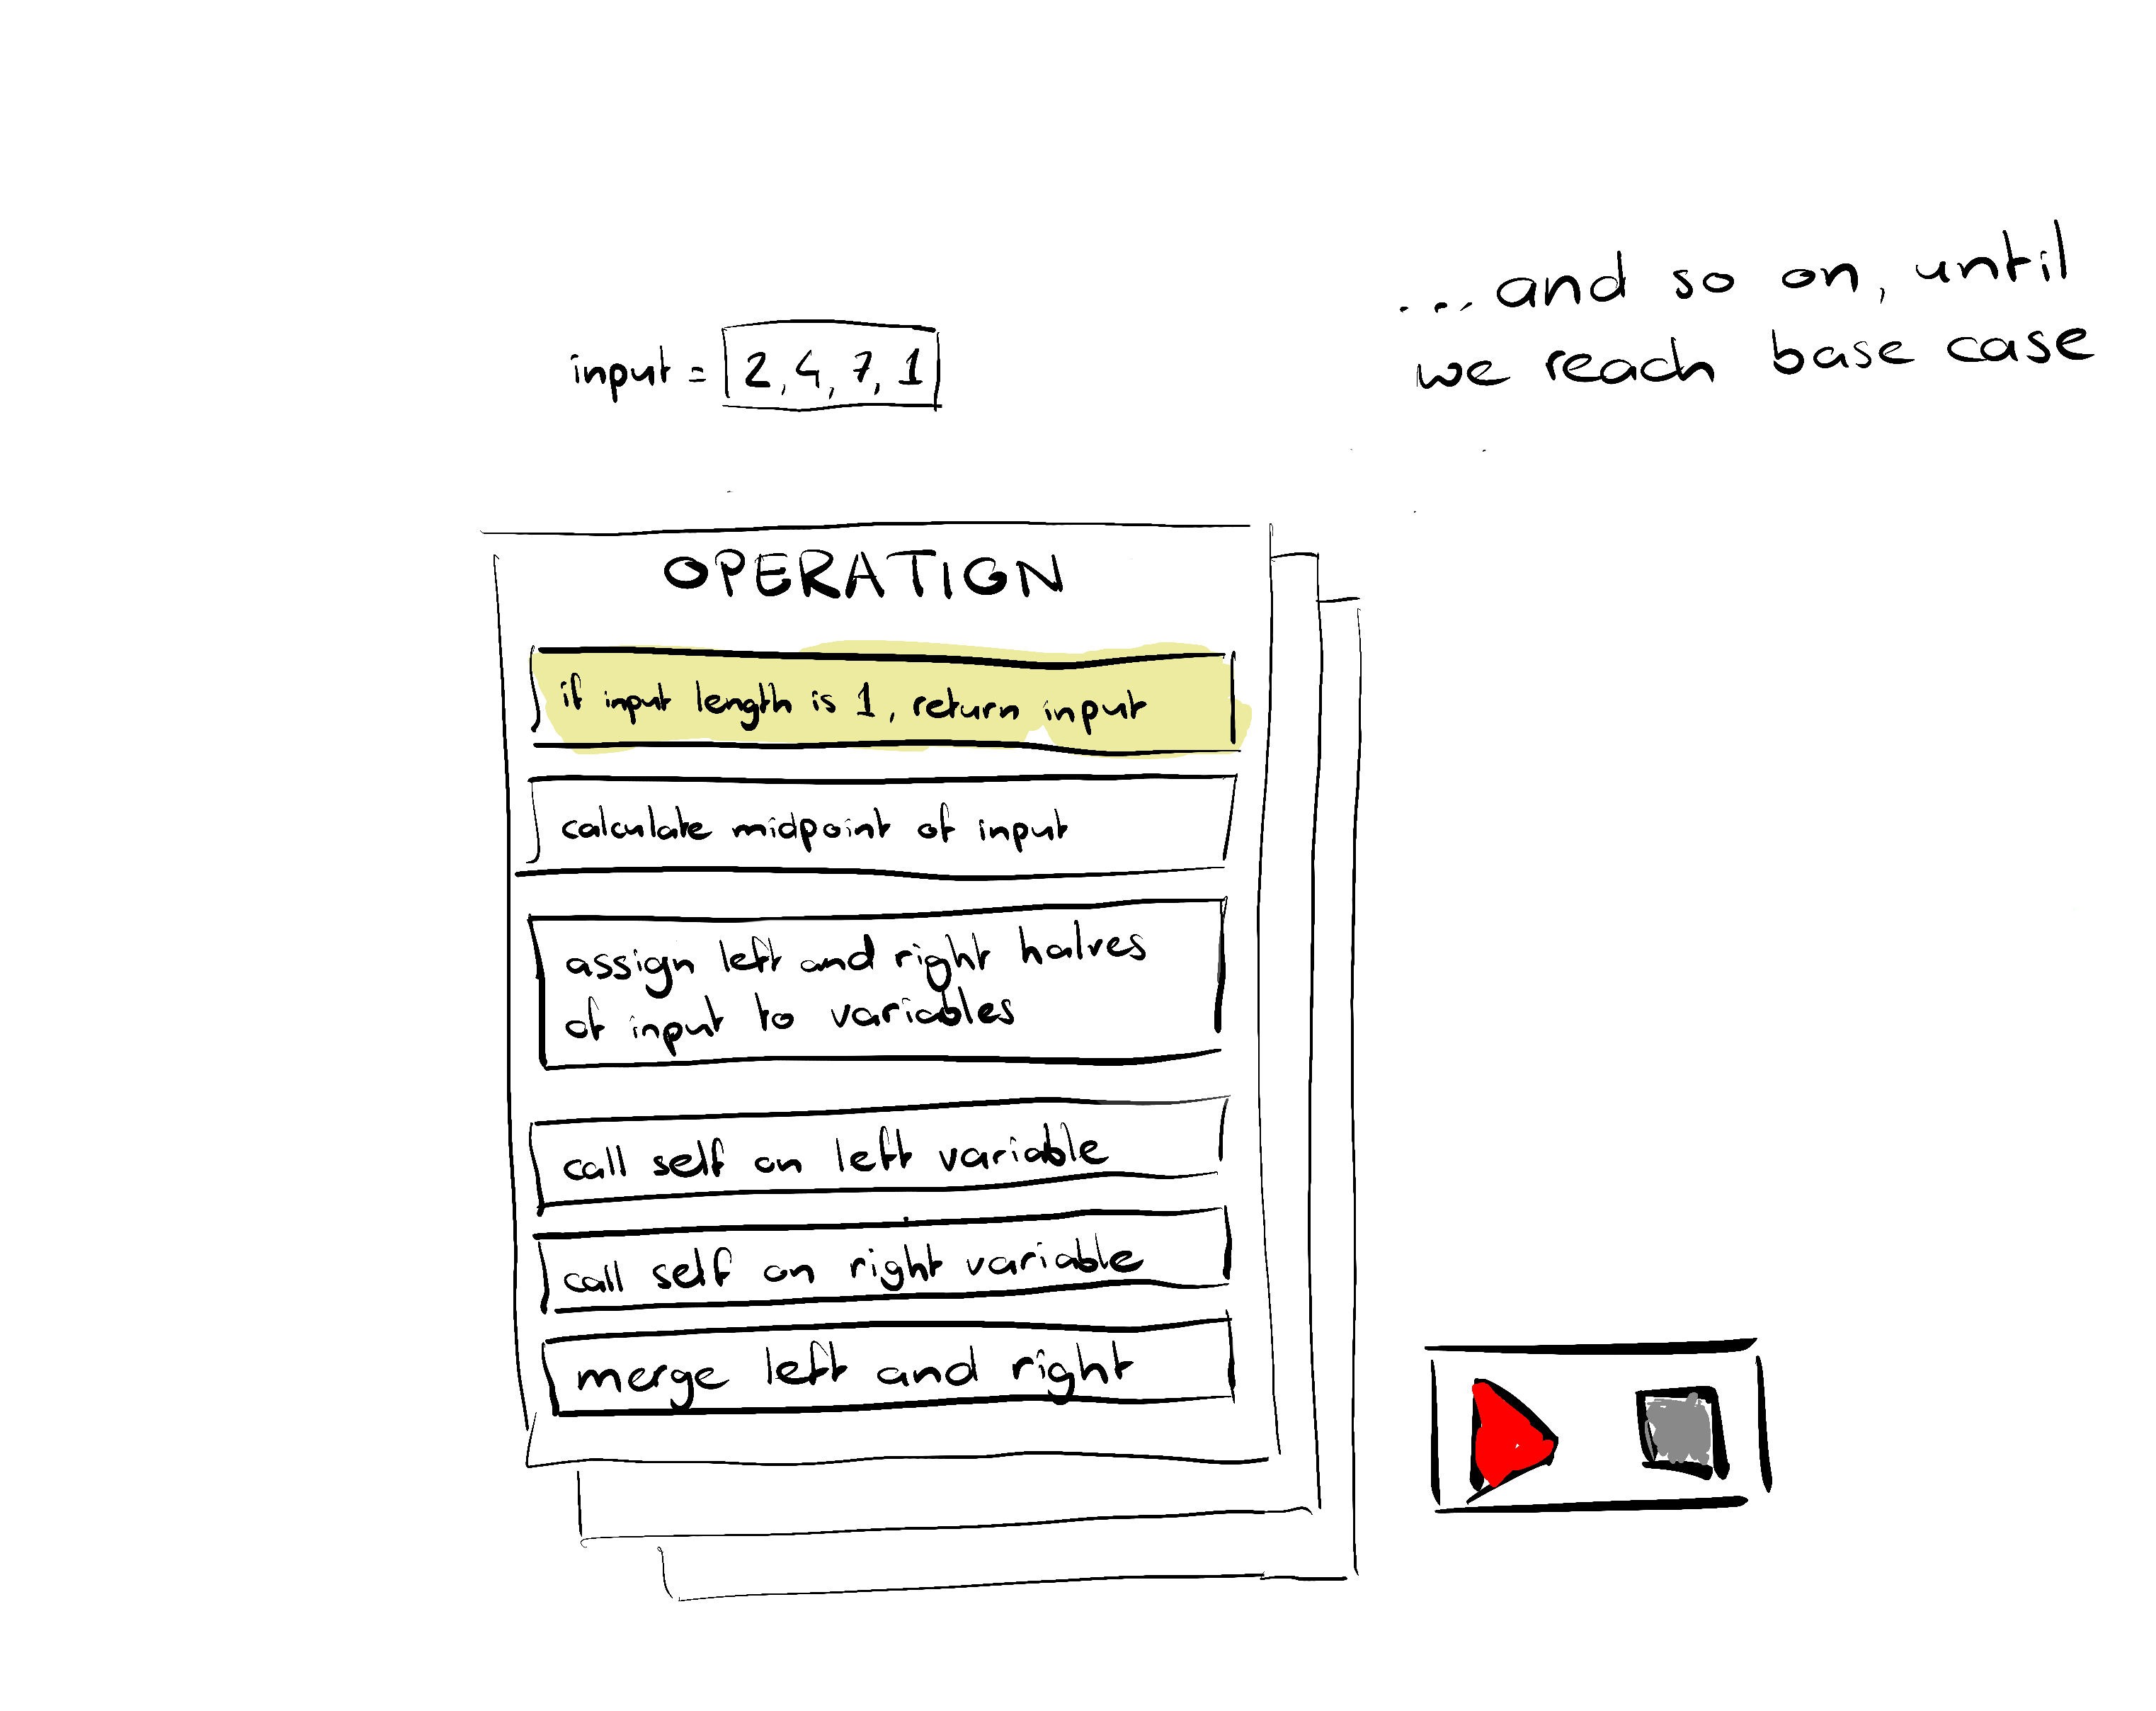 input = 2, 4, 7, 1
... and so on, until
we reach base case
OPERATION
if input length is 1, return input
calculate midpoint of input
assign left and right halves
of input to variables
call self on left variable
call self on right variable
merge left and right